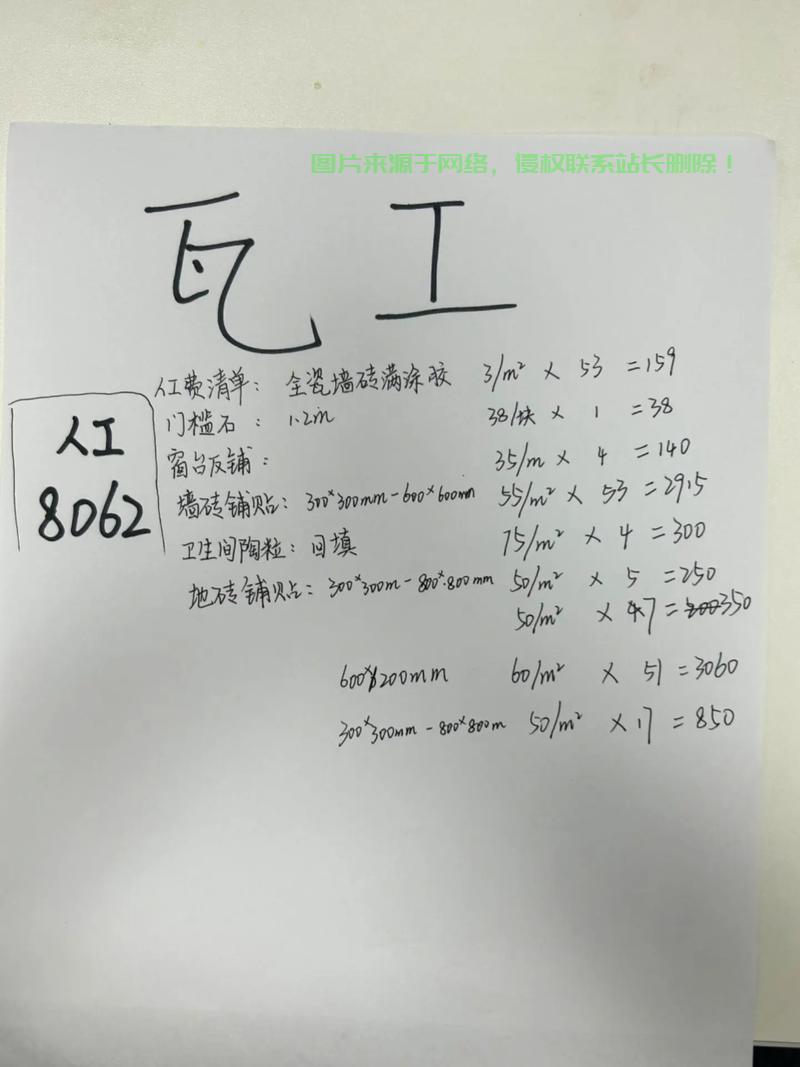 图片来源于网络，侵权联系站长删除！
瓦工
人工费清单： 全瓷墙砖满涂胶 3/m² × 53 =159
门槛石： 1.2m 38/块 × 1 =38
窗台反铺： 35/m × 4 =140
墙砖铺贴：300×300mm-600×600mm 55/m² × 53 =2915
卫生间陶粒：回填 75/m² × 4 =300
地砖铺贴：300×300m-800×800mm 50/m² × 5 =250
50/m² × 7 = 350
600×1200mm 60/m² × 51 =3060
300×300mm-800×800m 50/m² × 17 =850
人工
8062